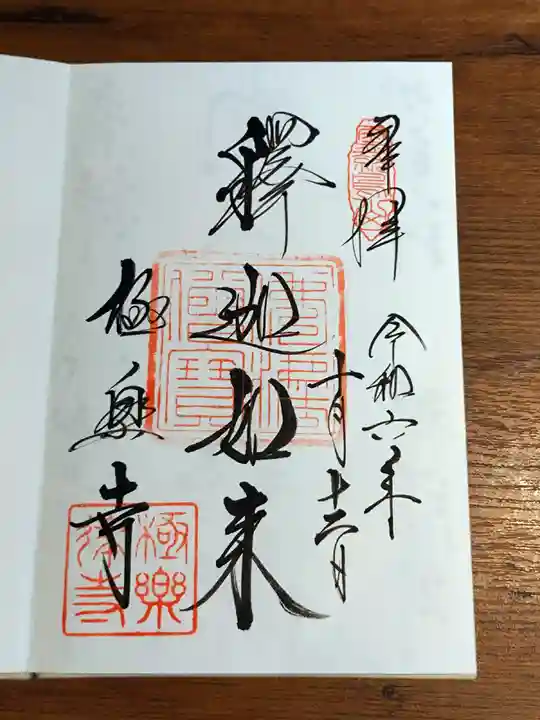 奉拝
令和六年
十月十二日
釋迦如来
極楽寺
佛法僧寶
極樂寺